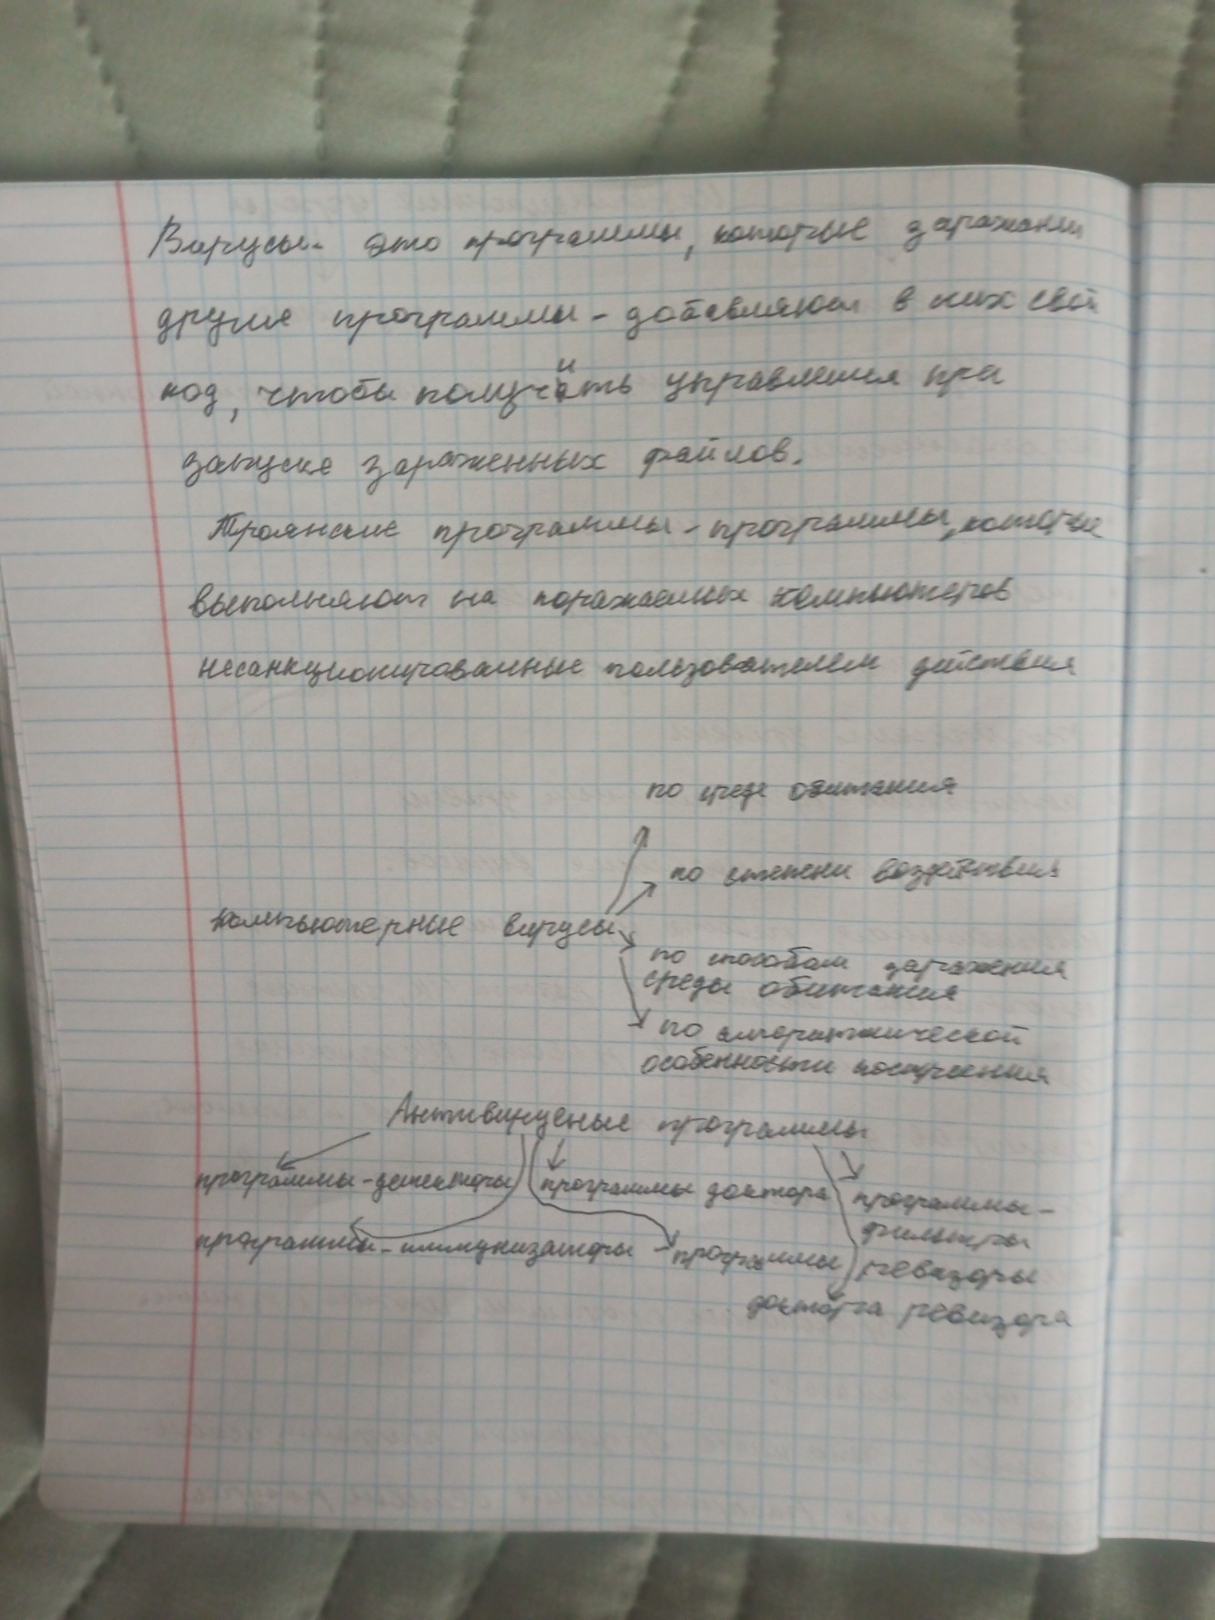 Вирусы- это программы, которые заражают
другие программы - добавляют в них свой
код, чтобы получить управления при
запуске зараженных файлов.
Троянские программы - программы, которые
выполняют на поражаемых компьютеров
несанкционированные пользователем действия
по среде обитания
по степени воздействия
компьютерные вирусы
по способам заражения
среды обитания
по алгоритмической
особенности построения
Антивирусные программы
программы-детекторы
программы доктора
программы-
фильтры
программы-иммунизаторы
программы ревизоры
доктора ревизора